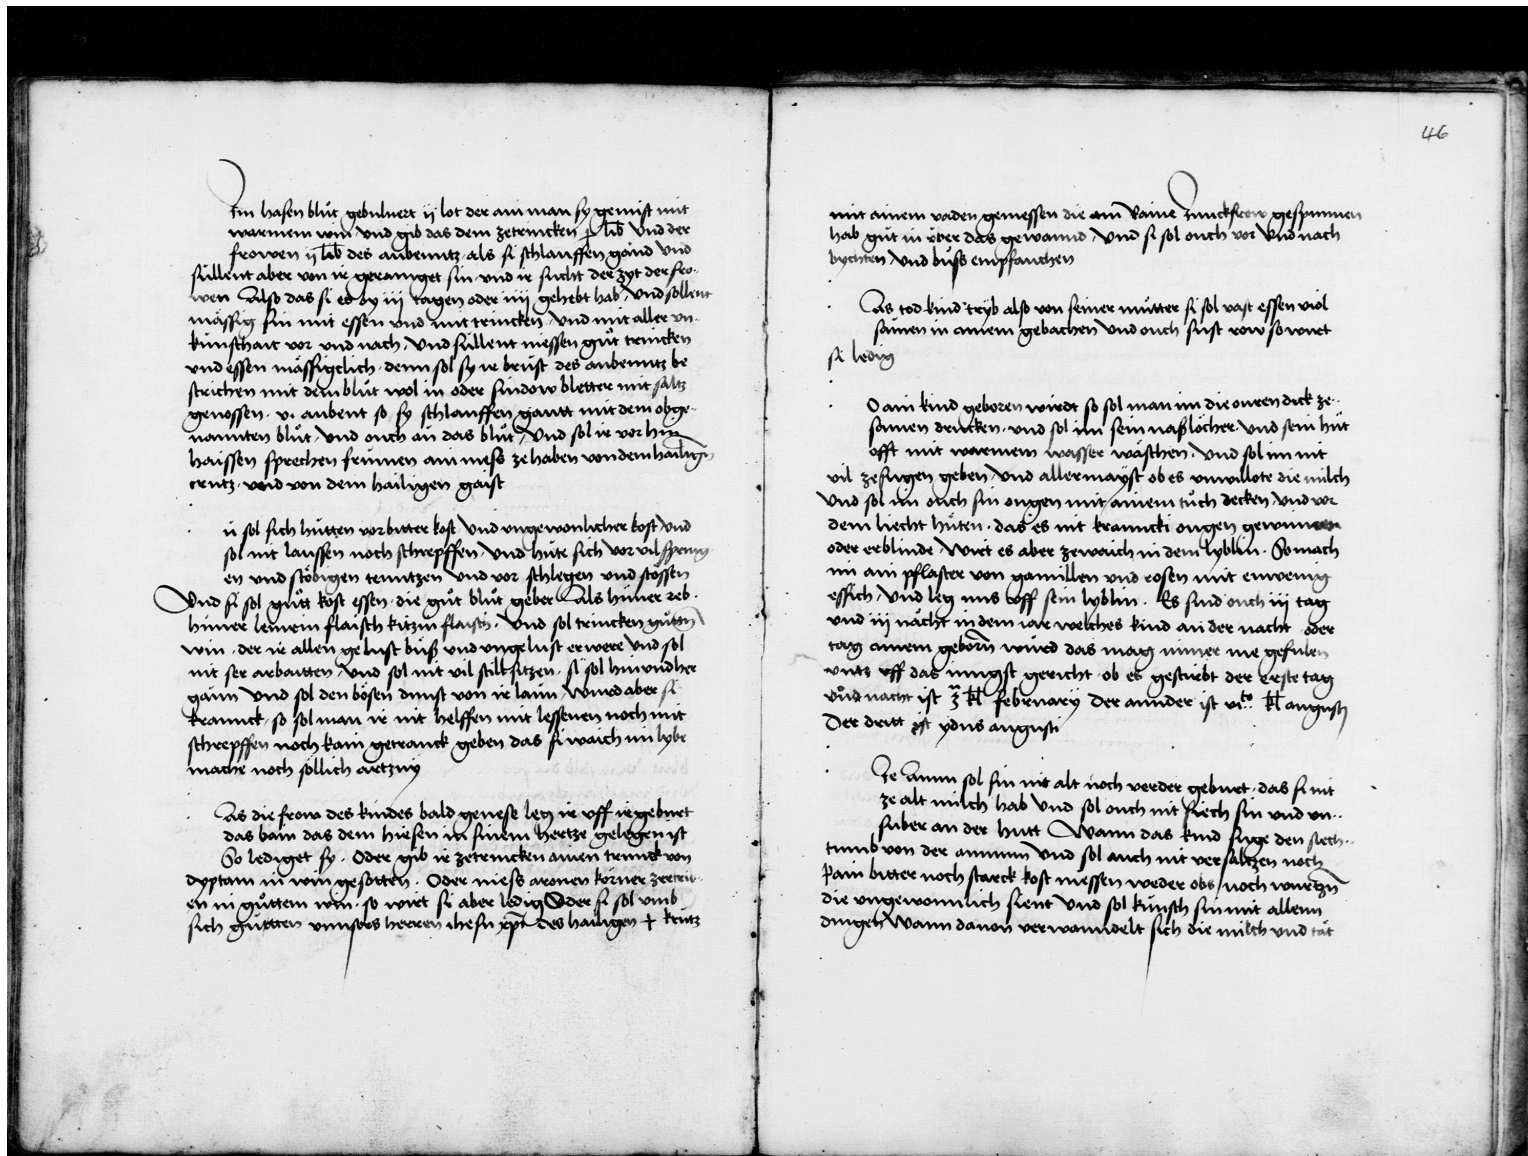 im hasen blůt gebuluert ij lot der ain man sy gemist mit
warmem win vnd gib das dem zetrincken lib vnd der
frowen ij lib des aubentz als si schlauffen gand vnd
süllent aber von ir gerainiget sin vnd ir sucht der zyt der fro-
wen Also das si es by iij tagen oder iiij gehebt hab vnd sollent
mässig sin mit essen vnd mit trincken vnd mit aller vn-
künschait vor vnd nach vnd süllent niessen gůt trincken
vnd essen mässigclich denn sol sy ir brust des aubentz be
strichen mit dem blůt wol in oder sindow bletter mit saltz
genossen v. aubent so sy schlauffen gautt mit dem obge-
nannten blůt vnd ouch an das blůt vnd sol ir vor hin
haissen sprechen frümen ain mess ze haben von dem hailigen
crütz vnd von dem hailigen gaist
ü sol sich hütten vor bitter kost vnd vngewonlicher kost vnd
sol nit laussen noch schrepffen vnd hüte sich vor vil spring
en vnd stöbigen tenntzen vnd vor schlegen vnd stössen
Vnd si sol gůtt kost essen die gůt blůt geber Als hüner reb-
hüner lemerin flaisch kitzin flaisch vnd sol trincken gůtten
win der ir allen gelust büß vnd vngelust er were vnd sol
nit ser arbaitten vnd sol nit vil still sitzen si sol hin vnd her
gann vnd sol den bösen dunst von ir laun würd aber si
kranck so sol man ir nit helffen mit lessenen noch mit
schrepffen noch kain getranck geben das si waich im lybe
mache noch söllich artzny
As die frow des kindes bald genese leg ir vff ir geburt
das bain das dem hirsen in sinem hertze gelegen ist
So lediget sy Oder gib ir zetrincken ainen trunck von
dyptam in win gesotten Oder niess aronen körner zertrib-
en in gůttem win so wirt si aber ledig Oder si sol vmb
sich gürtten vnnsers herren ihesu xpi des hailigen + krütz
46
mit ainem vaden gemessen die ain Raine Junckfrow gespunnen
hab gůt in über das gewannd vnd si sol ouch vor vnd nach
bychten vnd bůss empfauchen
As tod kind tryb also von seiner můtter si sol vast essen viol
saumen in ainem gebachen vnd ouch sust row so wirt
si ledig
O ain kind geboren wirdt so sol man im die ouren dick ze-
samen drucken vnd sol im sein naßlöcher vnd sein hut
offt mit warmem wasser wäschen vnd sol im nit
vil ze sugen geben vnd allermayst ob es vnwillote die milch
vnd sol im ouch sin ougen mit ainem tůch decken vnd vor
dem liecht hüten das es nit krannckі ougen gewinnen
oder erblinde Wirt es aber zewaich in dem lyblin So mach
im ain pflaster von gamillen vnd rosen mit enwenig
essich vnd leg ims voff sein lyblin Es sind ouch iij tag
vnd iij nächt in dem iar welches kind an der nacht oder
tag ainem geborn würd das mag nimer me gefulen
vntz vff das iungst gericht ob es gestirbt der erste tag
vnd nacht ist 3 kl february Der annder ist vi to kl augusti
Der dritt ist ydus augusti
Ie Amm sol sin nit alt noch verder geburt das si nit
ze alt milch hab vnd sol ouch nit siech sin vnd vn-
suber an der hutt Wann das kind suge den siech-
tumb von der ammen vnd sol auch nit versaltzen noch
kain bitter noch starck kost niessen weder obs noch wurtzn
die vngewonnlich sient vnd sol künsch sin mit allenn
dingen Wann dauon verwanndelt sich die milch vnd tät